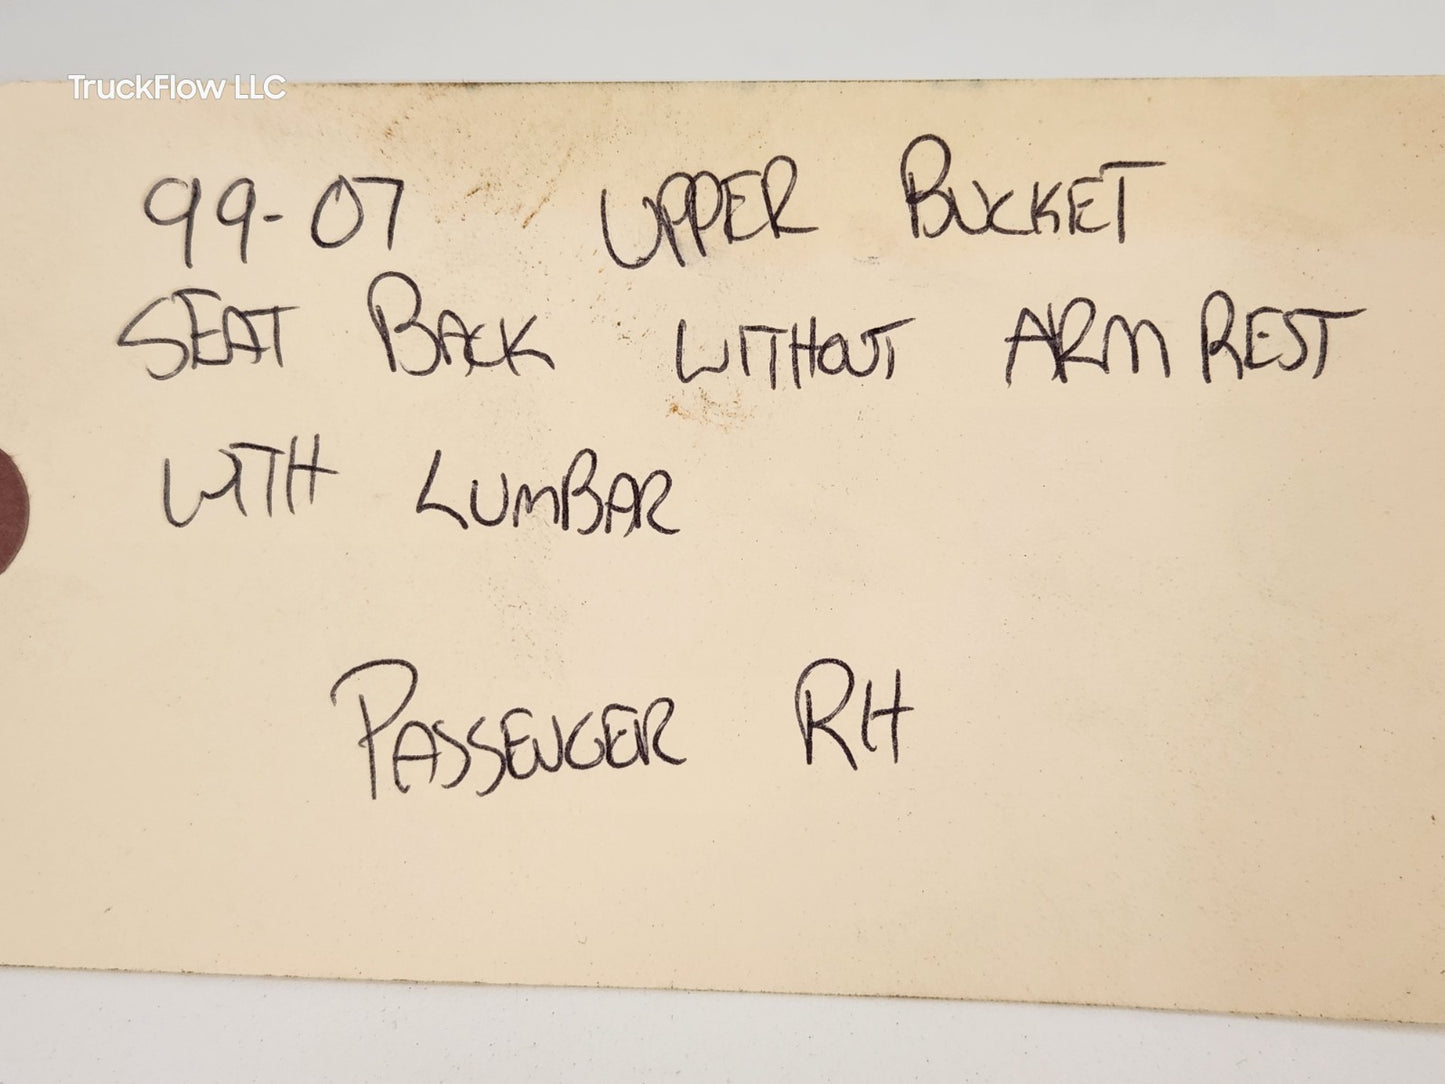 TruckFlow LLC
99-07 UPPER BUCKET
SEAT BACK WITHOUT ARM REST
WITH LUMBAR
PASSENGER RH